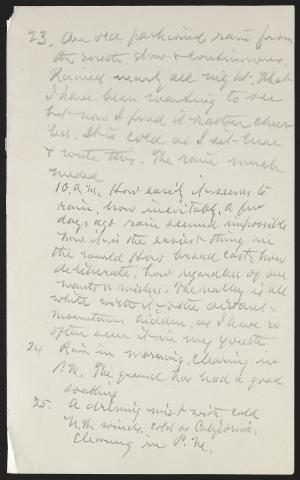 23. An old fashioned rain from
the South, slow & continuous.
Rained nearly all night. What
I have been wanting to see
but now I find it rather cheer-
less. It is cold as I sit here
& write this. The rain much
needed
10. a.m. How easily it seems to
rain, how inevitably, a few
days ago rain seemed impossible
now it is the easiest thing in
the world. How broad cast, how
deliberate, how regardless of our
wants & wishes. The valley is all
white with it & the distant
mountains hidden, as I have so
often seen it in my youth
24 Rain in morning, clearing in
P.M. The ground has had a good
soaking
25. A driving mist with cold
N.W. winds, cold as California.
Clearing in P.M.